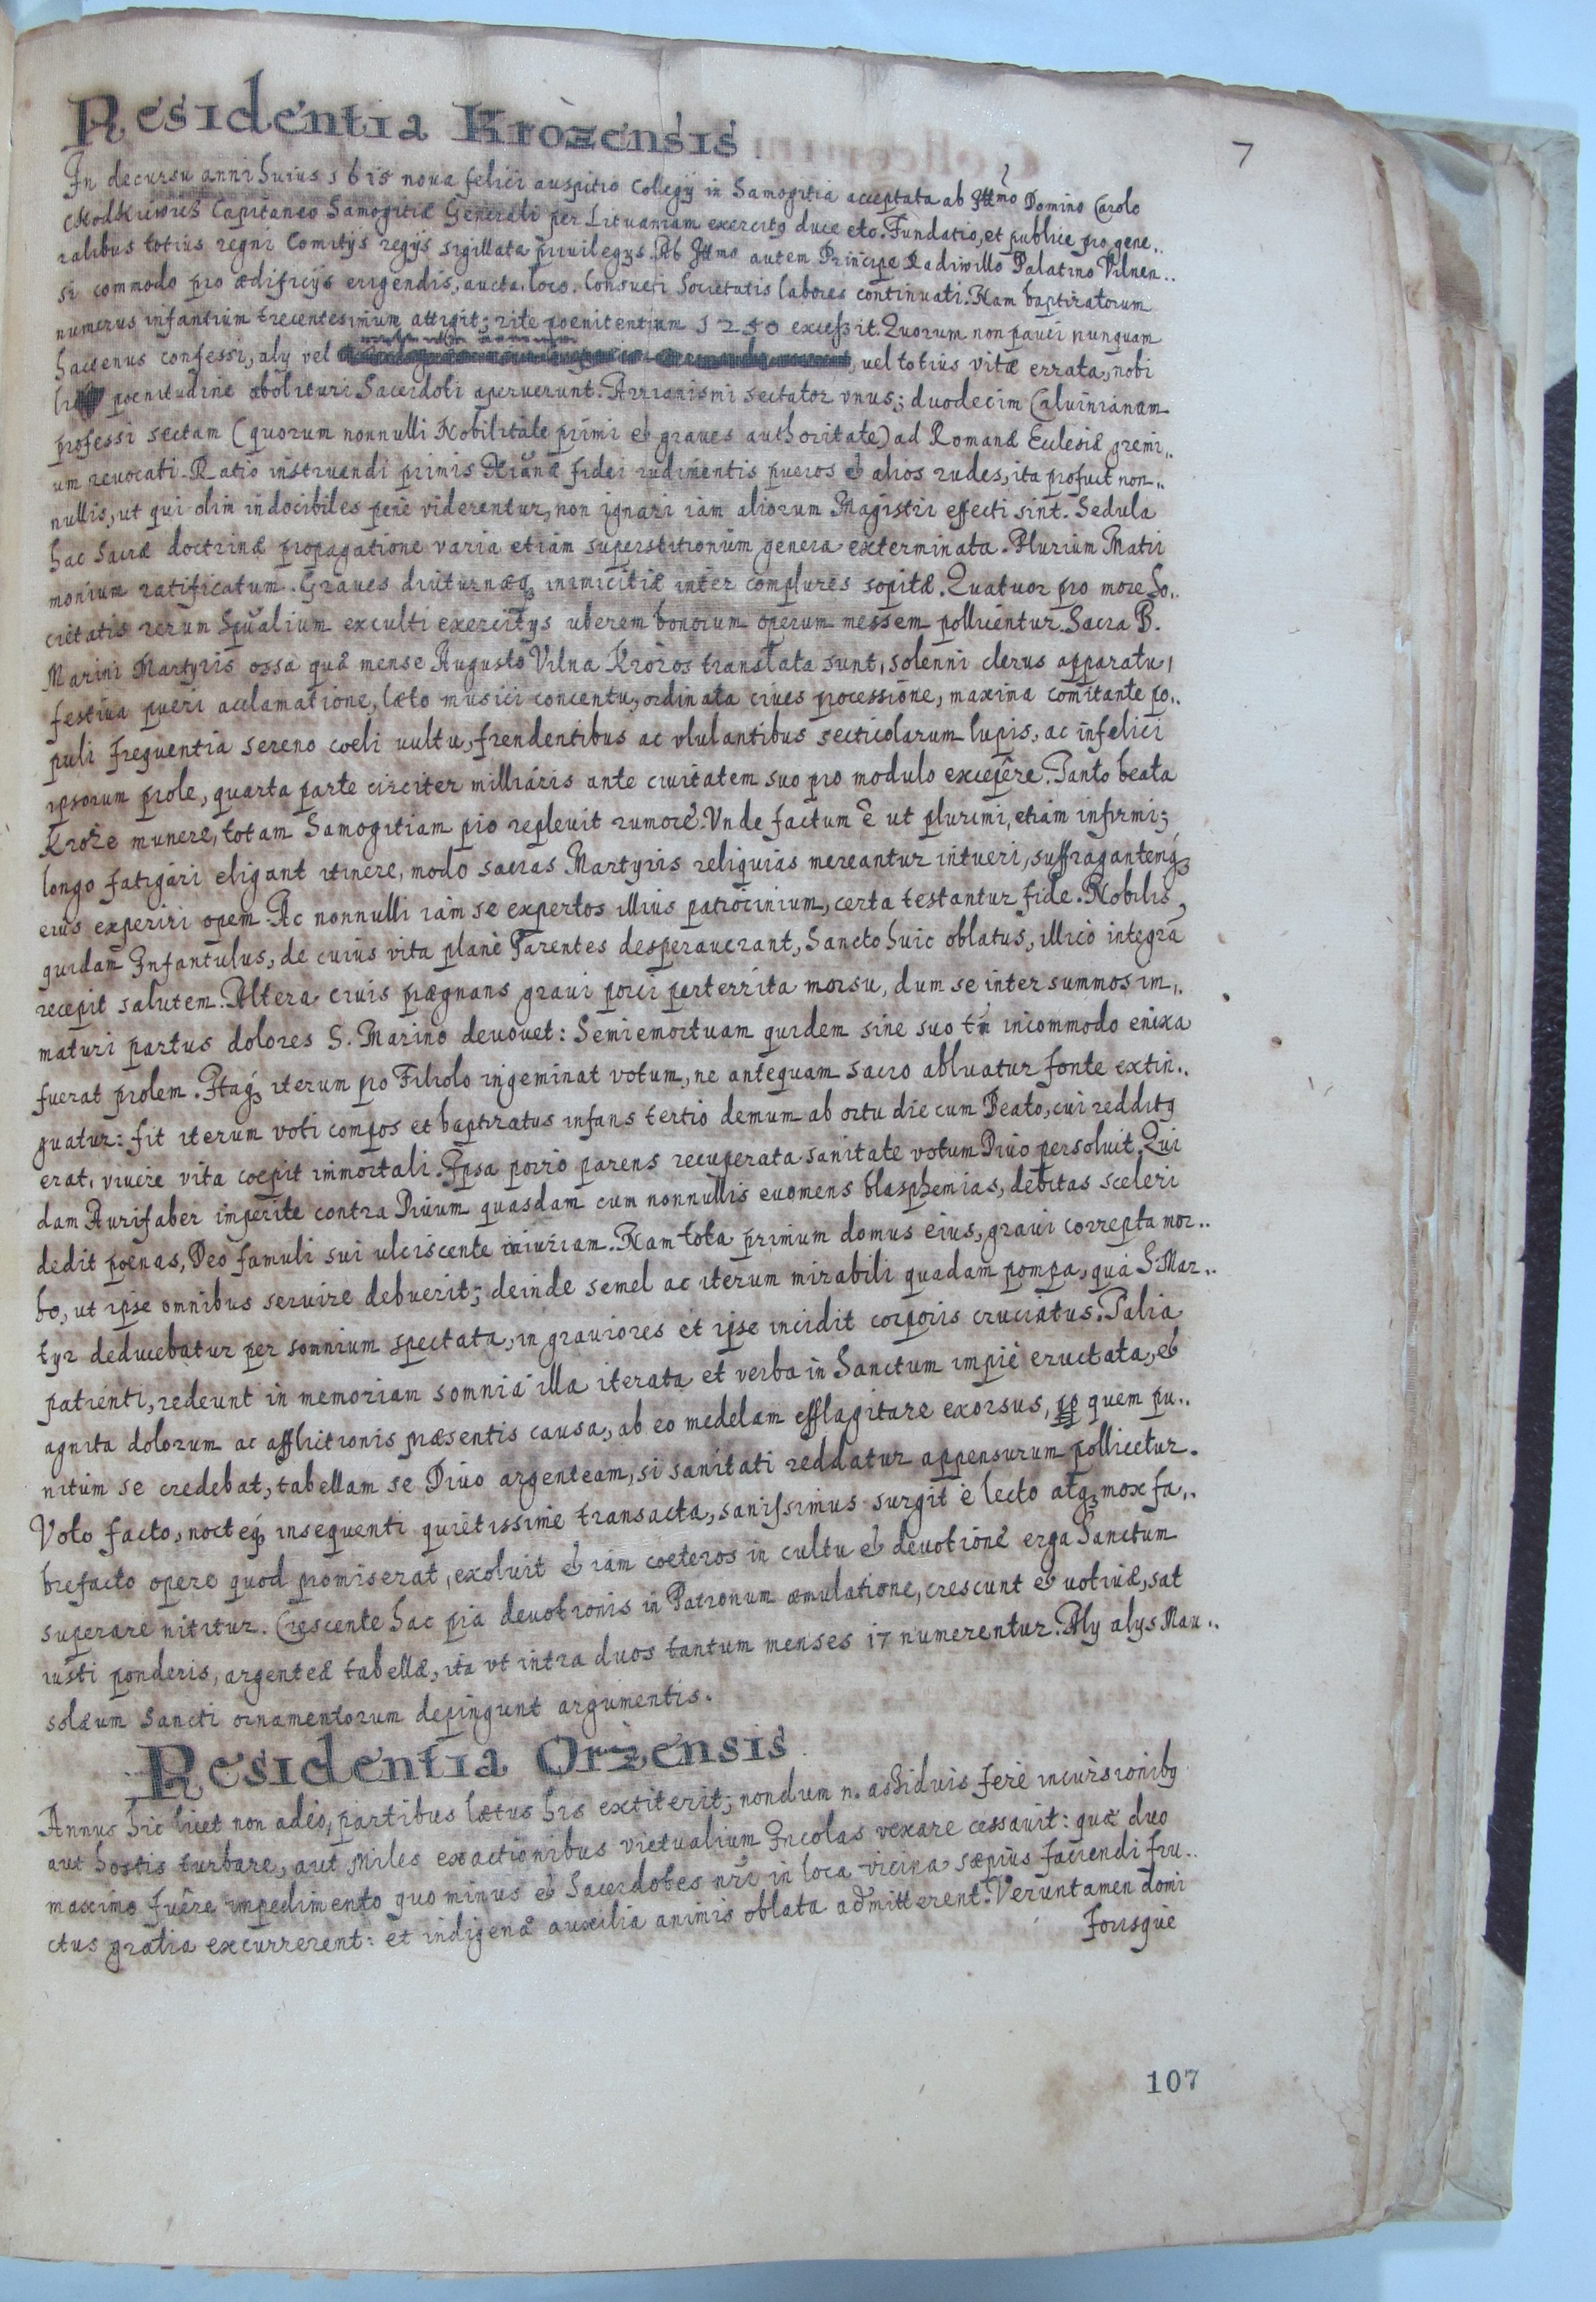 Residentia Krozensis
7
In decursu anni huius 1615 noua felici auspitio Collegij in Samogitia acceptata ab Illmo Domino Carolo
Chodkiewicz Capitaneo Samogitiæ Generali per Lituaniam exercitq duce etc. Fundatio, et publice pro gene..
ralibus totius regni Comitijs regijs sigillata priuilegijs. Ab Illmo autem Principe Radiwillo Palatino Vilnen..
si commodo pro ædificijs erigendis, aucta loco. Consueti Societatis labores continuati. Nam baptizatorum
numerus infantium trecentesimum attigit; rite poenitentium 1250 excessit. Quorum non pauci nunquam
hactenus confessi, alij vel vel totius vitæ errata, nobi
poenitudine abolituri Sacerdoti aperuerunt. Arrianismi sectator vnus; duodecim Caluinianam
professi sectam (quorum nonnulli Nobilitate primi et graues authoritate) ad Romanæ Ecclesiæ gremi..
um reuocati. Ratio instruendi primis Xianæ fidei rudimentis pueros et alios rudes, ita profuit non..
nullis, ut qui olim indocibiles penè viderentur, non ignari iam aliorum Magistri effecti sint. Sedula
hac Sacræ doctrinæ propagatione varia etiam superstitionum genera exterminata. Plurium Matri
monium ratificatum. Graues diuturnæq; inimicitiæ inter complures sopitæ. Quatuor pro more So..
cietatis rerum Spualium exculti exercitijs uberem bonorum operum messem pollicentur. Sacra B.
Marini Martyris ossa quæ mense Augusto Vilna Krozos translata sunt, solenni clerus apparatu,
festiua pueri acclamatione, læto musici concentu, ordinata ciues processione, maxima comitante po..
puli frequentia sereno coeli uultu, frendentibus ac vlulantibus secticolarum lupis, ac infelici
ipsorum prole, quarta parte circiter milliaris ante ciuitatem suo pro modulo excepêre. Tanto beata
Kroze munere, totam Samogitiam pio repleuit rumore. Vnde factum ē ut plurimi, etiam infirmi;
longo fatigari eligant itinere, modo sacras Martyris reliquias mereantur intueri, suffragantemq;
eius experiri opem. Ac nonnulli iam se expertos illius patrocinium, certa testantur fide. Nobilis
quidam Infantulus, de cuius vita planè Parentes desperauerant, Sancto huic oblatus, illicò integrā
recepit salutem. Altera ciuis prægnans graui porci perterrita morsu, dum se inter summos im..
maturi partus dolores S. Marino deuouet: Semiemortuam quidem sine suo tn incommodo enixa
fuerat prolem. Itaq; iterum pro Filiolo ingeminat votum, ne antequam sacro abluatur fonte extin..
guatur: fit iterum voti compos et baptizatus infans tertio demum ab ortu die cum Beato, cui redditq
erat, viuere vita coepit immortali. Ipsa porro parens recuperata sanitate votum Diuo persoluit. Qui
dam Aurifaber imperite contra Diuum quasdam cum nonnullis euomens blasphemias, debitas sceleri
dedit poenas, Deo famuli sui ulciscente iniuriam. Nam tota primum domus eius, graui correpta mor..
bo, ut ipse omnibus seruire debuerit; deinde semel ac iterum mirabili quadam pompa, quâ S. Mar..
tyr deducebatur per somnium spectata, in grauiores et ipse incidit corporis cruciatus. Talia
patienti, redeunt in memoriam somnia illa iterata et verba in Sanctum impiè eructata, et
agnita dolorum ac afflictionis præsentis causa, ab eo medelam efflagitare exorsus, quem pu..
nitum se credebat, tabellam se Diuo argenteam, si sanitati reddatur appensurum pollicetur.
Voto facto, nocteq; insequenti quietissimè transacta, sanissimus surgit è lecto atq; mox fa..
brefacto opere quod promiserat, exoluit et iam coeteros in cultu et deuotione erga Sanctum
superare nititur. Crescente hac pia deuotionis in Patronum æmulatione, crescunt et uotiuæ, sat
iusti ponderis, argenteæ tabellæ, ita vt intra duos tantum menses 17 numerentur. Alij alijs Mau..
solæum Sancti ornamentorum depingunt argumentis.
Residentia Orzensis
Annus hic licet non adeò, partibus lætus his extiterit; nondum n. assiduis ferè incursionibq
aut hostis turbare, aut Miles exactionibus victualium Incolas vexare cessauit: quæ duo
maximo fuêre impedimento quo minus et Sacerdotes nri in loca vicina sæpius faciendi fru..
ctus gratia excurrerent: et indigenæ auxilia animis oblata admitterent. Veruntamen domi
forisque
107